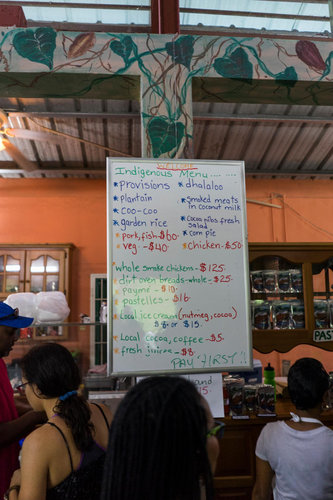 WELCOME
Indigenous Menu ....
* Provisions * dhalaloo
* Plantain
* Smoked meats in coconut milk
* Coo-coo
* garden rice
* Cocoa nibs fresh salad
* corn pie
* pork, fish $60.
* veg - $40 * Chicken - $50
* whole smoke chickens - $125.
* dirt oven breads-whole - $25.
* payme - $10.
* pastelles - $16.
* local ice cream (nutmeg, cocoa)
$8. or $15.
* Local cocoa, coffee - $5.
* fresh juices - $8.
PAY FIRST!!
and
$15
PAST